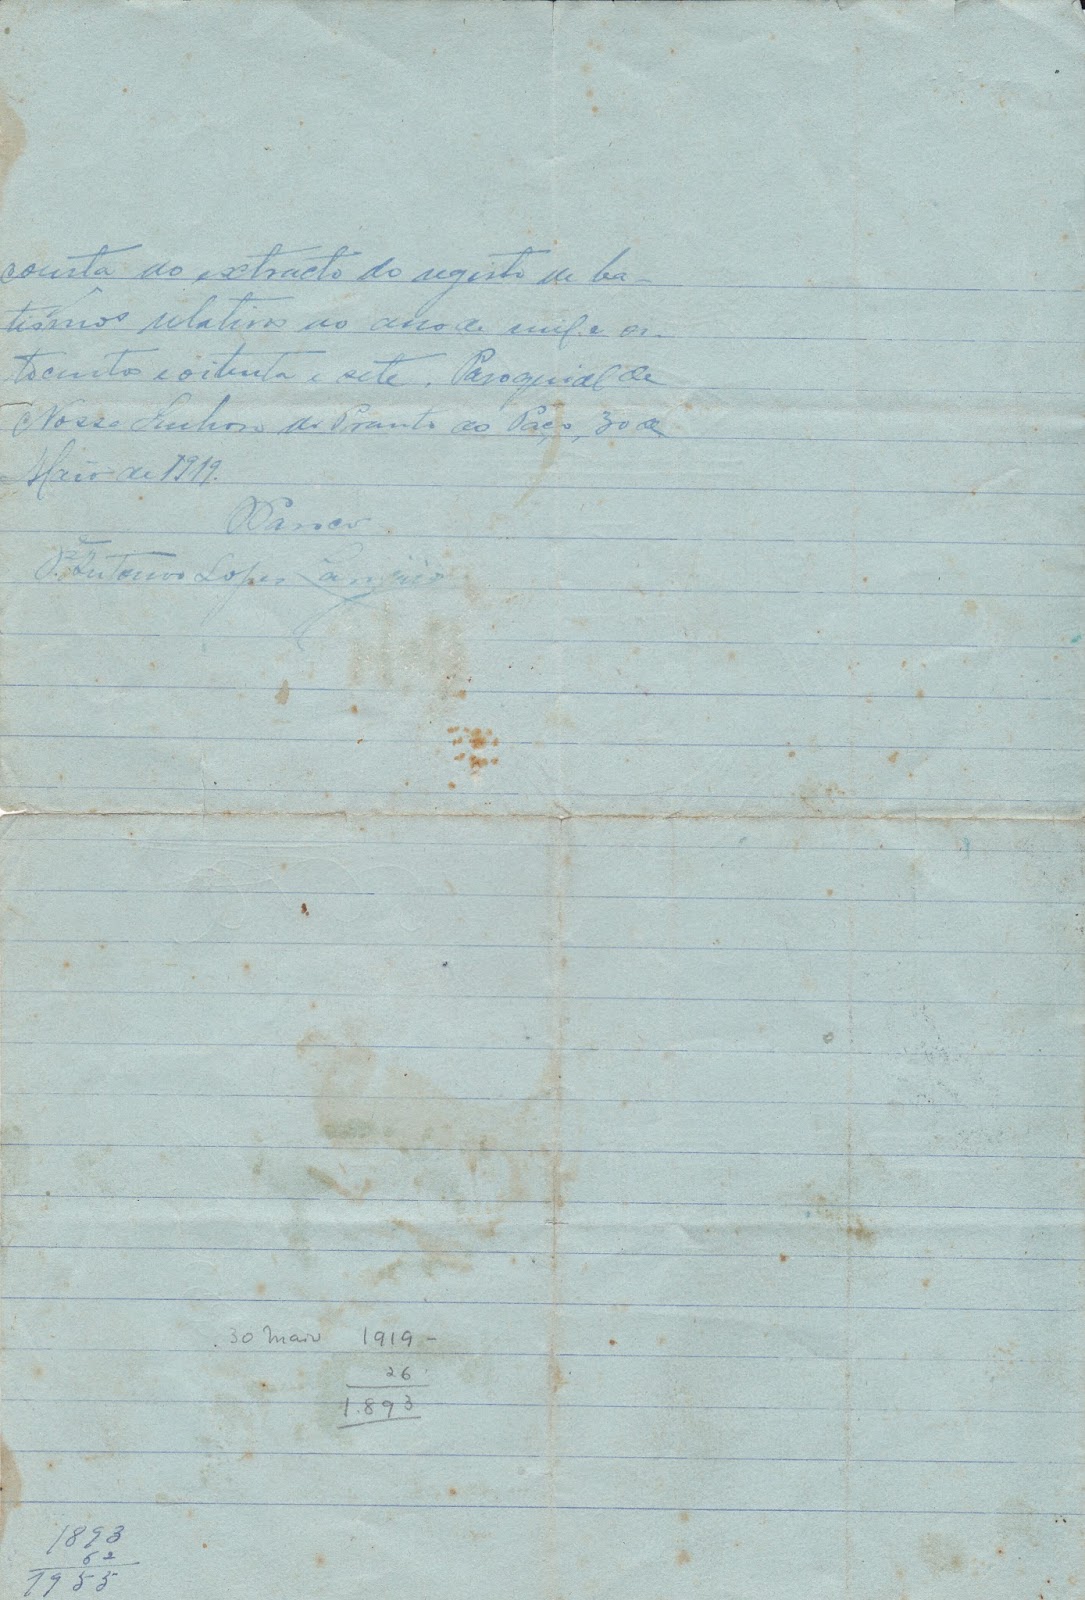 consta do extracto do registo de ba-
tismos relativos ao ano de mil e oi-
tocentos e oitenta e sete. Paroquial de
Nossa Senhora do Pranto do Paço, 30 de
Maio de 1919.
O Paroco
P.e Antonio Lopes
30 Maio 1919 -
26
1.893
1893
62
1955